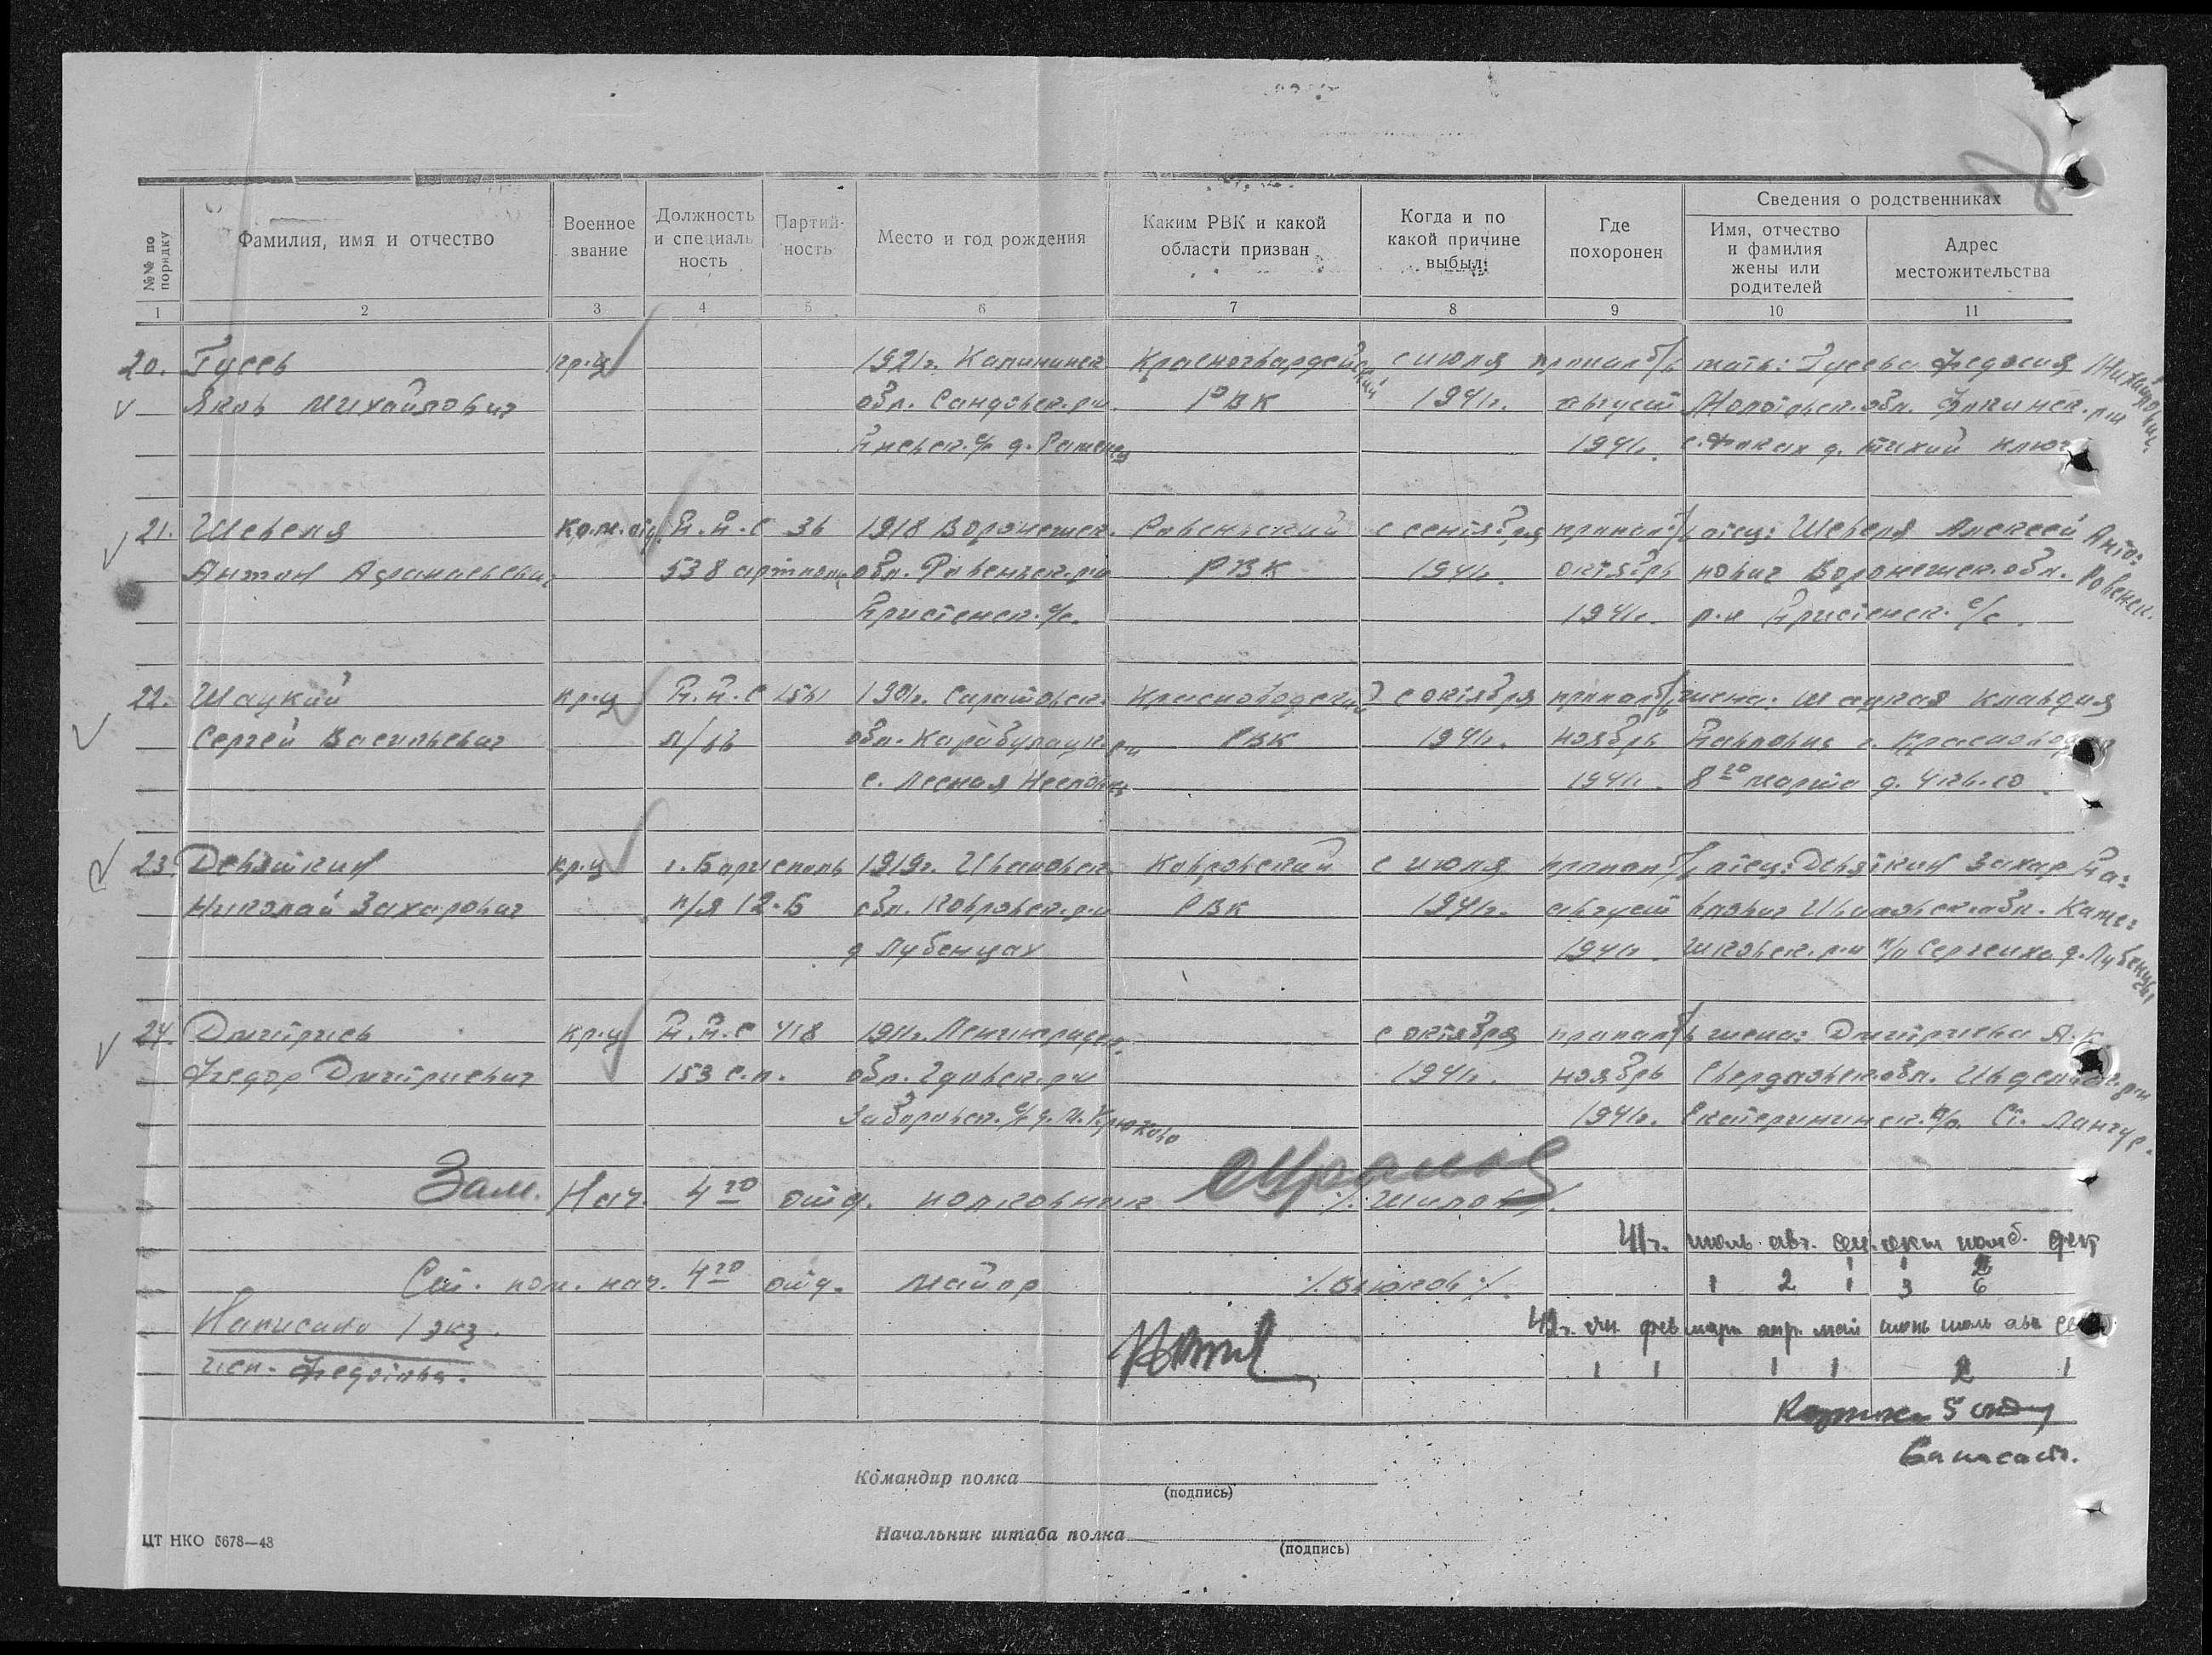 №№ по порядку
Фамилия, имя и отчество
Военное звание
Должность и специаль ность
Партий- ность
Место и год рождения
Каким РВК и какой области призван
Когда и по какой причине выбыл
Где похоронен
Сведения о родственниках
Имя, отчество и фамилия жены или родителей
Адрес местожительства
1 2 3 4 5 6 7 8 9 10 11
20. Гусев кр-ц 1921г. Калининск. Красногвардейский с июля пропал б/в мать: Гусева Федосия
Яков Михайлович обл. Сандовск. р-н РВК 1941г. август Молотовск. обл. Фокинск. р-н
с/с д. 1941г. с. Фоках д. Тихий Ключ
21. Шевеля ком. отд. П.П.С 36 1918 Воронежск. Ровеньский с сентября пропал б/в отец: Шевеля Алексей Анто=
Антон Афанасьевич 538 артполк обл. Ровеньск. р-н РВК 1941г. октябрь нович Воронежск. обл. Ровенск.
с/с. 1941г. р-н с/с
22. Шацкий кр-ц П.П.С 1901г. Саратовск. Краснободский с октября пропал б/в жена: Шацкая Клавдия
Сергей Васильевич п/бв обл. Карабулакск. р-н РВК 1941г. ноябрь Павловна г.
с. Лесная Неёловка 1941г. 8го марта д. 4 кв. 10
23. Девяткин кр-ц г. Борисполь 1919г. Ивановск. Ковровский с июля пропал б/в отец: Девяткин Захар
Николай Захарович п/я 12-Б обл. Ковровск. р-н РВК 1941г. август Ивановск. обл. Каме=
д Лубенцах 1941г. шковск. р-н п/о Сергеиха д. Лубенцы
24. Дмитриев кр-ц П.П.С 418 1911г. Ленинградск. с октября пропал б/в жена: Дмитриева А.К.
Федор Дмитриевич 153 с.п. обл. Гдовск. р-н 1941г. ноябрь Свердловск. обл. Ивдельск. р-н
с/с д. М. Крюково 1941г. Екатерининск. п/о. Ст. Лангур.
Зам. Нач. 4го отд. полковник /Шилов/.
41г. июль авг. сен. окт нояб. дек
Ст. пом. нач. 4го отд. майор
1 2 1 3 6
Написано 1 экз.
42г. ян. фев март апр. май июнь июль авг сен
исп. Федотова.
1 1 1 1 2 1
5
Командир полка
(подпись)
Начальник штаба полка
(подпись)
ЦТ НКО 5678—43